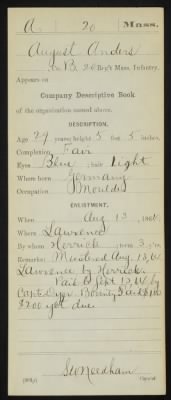 A. 20 Mass.
August Anders
Co. B, 20 Reg't Mass. Infantry.
Appears on
Company Descriptive Book
of the organization named above.
DESCRIPTION.
Age 29 years; height 5 feet 5 inches.
Complexion Fair
Eyes Blue; hair light
Where born Germany
Occupation Moulder
ENLISTMENT.
When Aug 13, 1864.
Where Lawrence
By whom Herrick; term 3 y'rs.
Remarks: Mustered Aug 13, 64
Lawrence by Herrick.
Paid to Sept 12, 64 by
Capt. Dyer. Bounty Paid
$200 yet due.
SW Needham
Copyist.